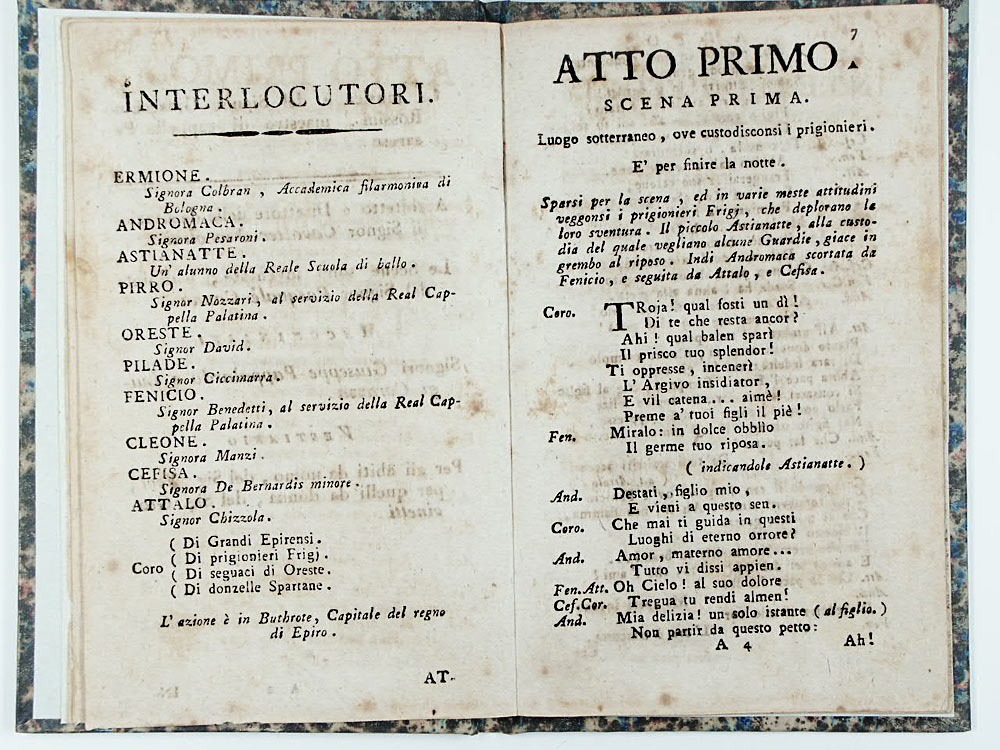 6
INTERLOCUTORI.
ERMIONE.
Signora Colbran, Accademica filarmonica di
Bologna.
ANDROMACA.
Signora Pesaroni.
ASTIANATTE.
Un' alunno della Reale Scuola di ballo.
PIRRO.
Signor Nozzari, al servizio della Real Cap-
pella Palatina.
ORESTE.
Signor David.
PILADE.
Signor Ciccimarra.
FENICIO.
Signor Benedetti, al servizio della Real Cap-
pella Palatina.
CLEONE.
Signora Manzi.
CEFISA.
Signora De Bernardis minore.
ATTALO.
Signor Chizzola.
Coro ( Di Grandi Epirensi.
( Di prigionieri Frigj.
( Di seguaci di Oreste.
( Di donzelle Spartane.
L' azione è in Buthrote, Capitale del regno
di Epiro.
AT-
7
ATTO PRIMO.
SCENA PRIMA.
Luogo sotterraneo, ove custodisconsi i prigionieri.
E' per finire la notte.
Sparsi per la scena, ed in varie meste attitudini
veggonsi i prigionieri Frigj, che deplorano la
loro sventura. Il piccolo Astianatte, alla custo-
dia del quale vegliano alcune Guardie, giace in
grembo al riposo. Indi Andromaca scortata da
Fenicio, e seguita da Attalo, e Cefisa.
Coro. TRoja! qual fosti un dì!
Di te che resta ancor?
Ahi! qual balen sparì
Il prisco tuo splendor!
Ti oppresse, incenerì
L' Argivo insidiator,
E vil catena... aimè!
Preme a' tuoi figli il piè!
Fen. Miralo: in dolce obblìo
Il germe tuo riposa.
( indicandole Astianatte. )
And. Destati, figlio mio,
E vieni a questo sen.
Coro. Che mai ti guida in questi
Luoghi di eterno orrore?
And. Amor, materno amore...
Tutto vi dissi appien.
Fen.Att. Oh Cielo! al suo dolore
Cef.Cor. Tregua tu rendi almen!
And. Mia delizia! un solo istante ( al figlio. )
Non partir da questo petto:
A 4 Ah!